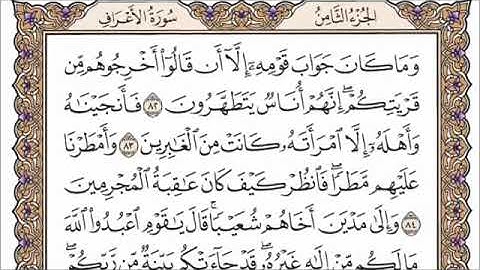 الجُزْءُ الثَّامِنُ
سُورَةُ الأَعْرَافِ
وَمَا كَانَ جَوَابَ قَوْمِهِۦٓ إِلَّآ أَن قَالُوٓا۟ أَخْرِجُوهُم مِّن
قَرْيَتِكُمْ ۖ إِنَّهُمْ أُنَاسٌ يَتَطَهَّرُونَ ٨٢ فَأَنجَيْنَٰهُ
وَأَهْلَهُۥٓ إِلَّا ٱمْرَأَتَهُۥ كَانَتْ مِنَ ٱلْغَٰبِرِينَ ٨٣ وَأَمْطَرْنَا
عَلَيْهِم مَّطَرًا ۖ فَٱنظُرْ كَيْفَ كَانَ عَٰقِبَةُ ٱلْمُجْرِمِينَ
٨٤ وَإِلَىٰ مَدْيَنَ أَخَاهُمْ شُعَيْبًا ۗ قَالَ يَٰقَوْمِ ٱعْبُدُوا۟ ٱللَّهَ
مَا لَكُم مِّنْ إِلَٰهٍ غَيْرُهُۥ ۖ قَدْ جَآءَتْكُم بَيِّنَةٌ مِّن رَّبِّكُمْ ۖ